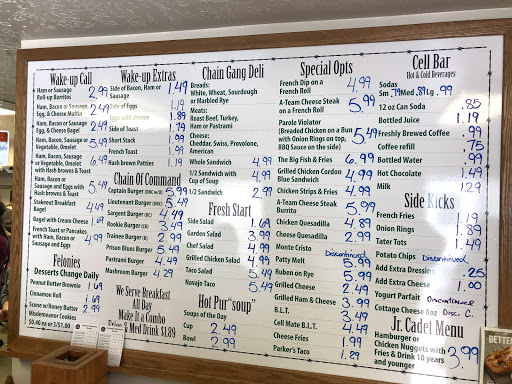 Wake-up Call
Ham or Sausage
Roll-up Burritos 2.99
Ham, Bacon or Sausage,
Egg, & Cheese Muffin 2.49
Ham, Bacon or Sausage
Egg, & Cheese Bagel 2.49
Ham, Bacon, Sausage or
Vegetable, Omelet 5.49
Ham, Bacon, Sausage
or Vegetable, Omelet
with Hash browns & Toast 6.49
Ham, Bacon, or
Sausage and Eggs with
Hash browns & Toast 5.49
Stakeout Breakfast
Bagel 4.49
Bagel with Cream Cheese 1.69
French Toast or Pancakes
with Ham, Bacon, or
Sausage and Eggs 4.99
Felonies
Desserts Change Daily
Peanut Butter Brownie 1.69
Cinnamon Roll 1.69
Scone w/Honey Butter 2.99
Misdemeanor Cookies
$0.40 ea or 3/$1.00
Wake-up Extras
Side of Bacon, Ham or
Sausage 1.49
Side of Eggs 1.19
Eggs with cheese 1.89
Side of Toast 1.19
Short Stack 1.99
French Toast 1.99
Hash brown Patties 1.19
Chain Of Command
Captain Burger 5.99
Lieutenant Burger 5.49
Sergeant Burger 4.49
Rookie Burger 3.49
Trainee Burger 2.99
Prison Blues Burger 5.49
Pastrami Burger 4.49
Mushroom Burger 4.29
We Serve Breakfast
All Day
Make It a Combo
& Med Drink $1.89
Chain Gang Deli
Breads:
White, Wheat, Sourdough
or Marbled Rye
Meats:
Roast Beef, Turkey,
Ham or Pastrami
Cheese:
Cheddar, Swiss, Provolone,
American
Whole Sandwich 4.99
1/2 Sandwich with
Cup of Soup 4.99
1/2 Sandwich 2.99
Fresh Start
Side Salad 1.69
Garden Salad 3.99
Chef Salad 4.99
Grilled Chicken Salad 4.99
Taco Salad 5.49
Navajo Taco 5.49
Hot Pur "soup"
Soups of the Day
Cup 2.49
Bowl 2.99
Special Opts
French Dip on a
French Roll 4.99
A-Team Cheese Steak
on a French Roll 5.99
Parole Violator
(Breaded Chicken on a Bun
with Onion Rings on top,
BBQ Sauce on the side) 5.49
The Big Fish & Fries 6.99
Grilled Chicken Cordon
Blue Sandwich 4.99
Chicken Strips & Fries 4.99
A-Team Cheese Steak
Burrito 5.99
Chicken Quesadilla 4.89
Cheese Quesadilla 2.99
Monte Cristo Discontinued
Patty Melt 5.99
Ruben on Rye 5.99
Grilled Cheese 2.99
Grilled Ham & Cheese 3.99
B.L.T. 3.49
Cell Mate B.L.T. 4.49
Cheese Fries 1.99
Parker's Taco 1.89
Cell Bar
Hot & Cold Beverages
Sodas
Sm .79 Med .89 Lg .99
12 oz Can Soda .85
Bottled Juice 1.19
Freshly Brewed Coffee .99
Coffee refill .75
Bottled Water .99
Hot Chocolate 1.49
Milk 1.29
Side Kicks
French Fries 1.19
Onion Rings 1.89
Tater Tots 1.49
Potato Chips Discontinued
Add Extra Dressing .25
Add Extra Cheese 1.00
Yogurt Parfait Discontinued
Cottage Cheese 8oz Disc. C.
Jr. Cadet Menu
Hamburger or
Chicken Nuggets with
Fries & Drink 10 years
and younger 3.99
BETTER